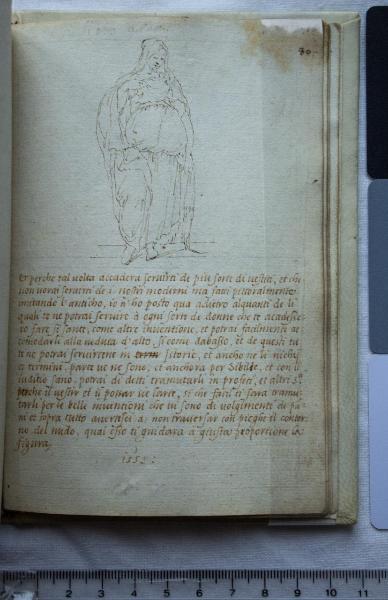 80.
Et perche tal volta accadera seruirti de piu sorte di uestiti, et che
non uorai seruirti de i nostri moderni ma fare pittoralmente
imitando l'anticho, io n'ho posto qua adietro alquanti de li
quali te ne potrai seruire à ogni sorte di donne che te acadesse
ro fare si sante, come altre inuentione, et potrai facilmente ac
comodarli alla ueduta d'alto, si come dabasso, et de questi tu
te ne potrai seruirtene in Istorie, et ancho ne li nichij
et termini, parte ue ne sono, et anchora per Sibille, et con il
iuditio sano, potrai di detti tramutarli in profeti, et altri Sti
che il uestir et il posare ne
tarli per le belle inuentioni che in sono di uolgimenti di pa
ni et sopra tutto auertisci di non trauersar con pieghe il contor
no del nudo, qual esso ti guidara a giusta proportione la
figura,
1553:
2 3 4 5 6 7 8 9 10 11